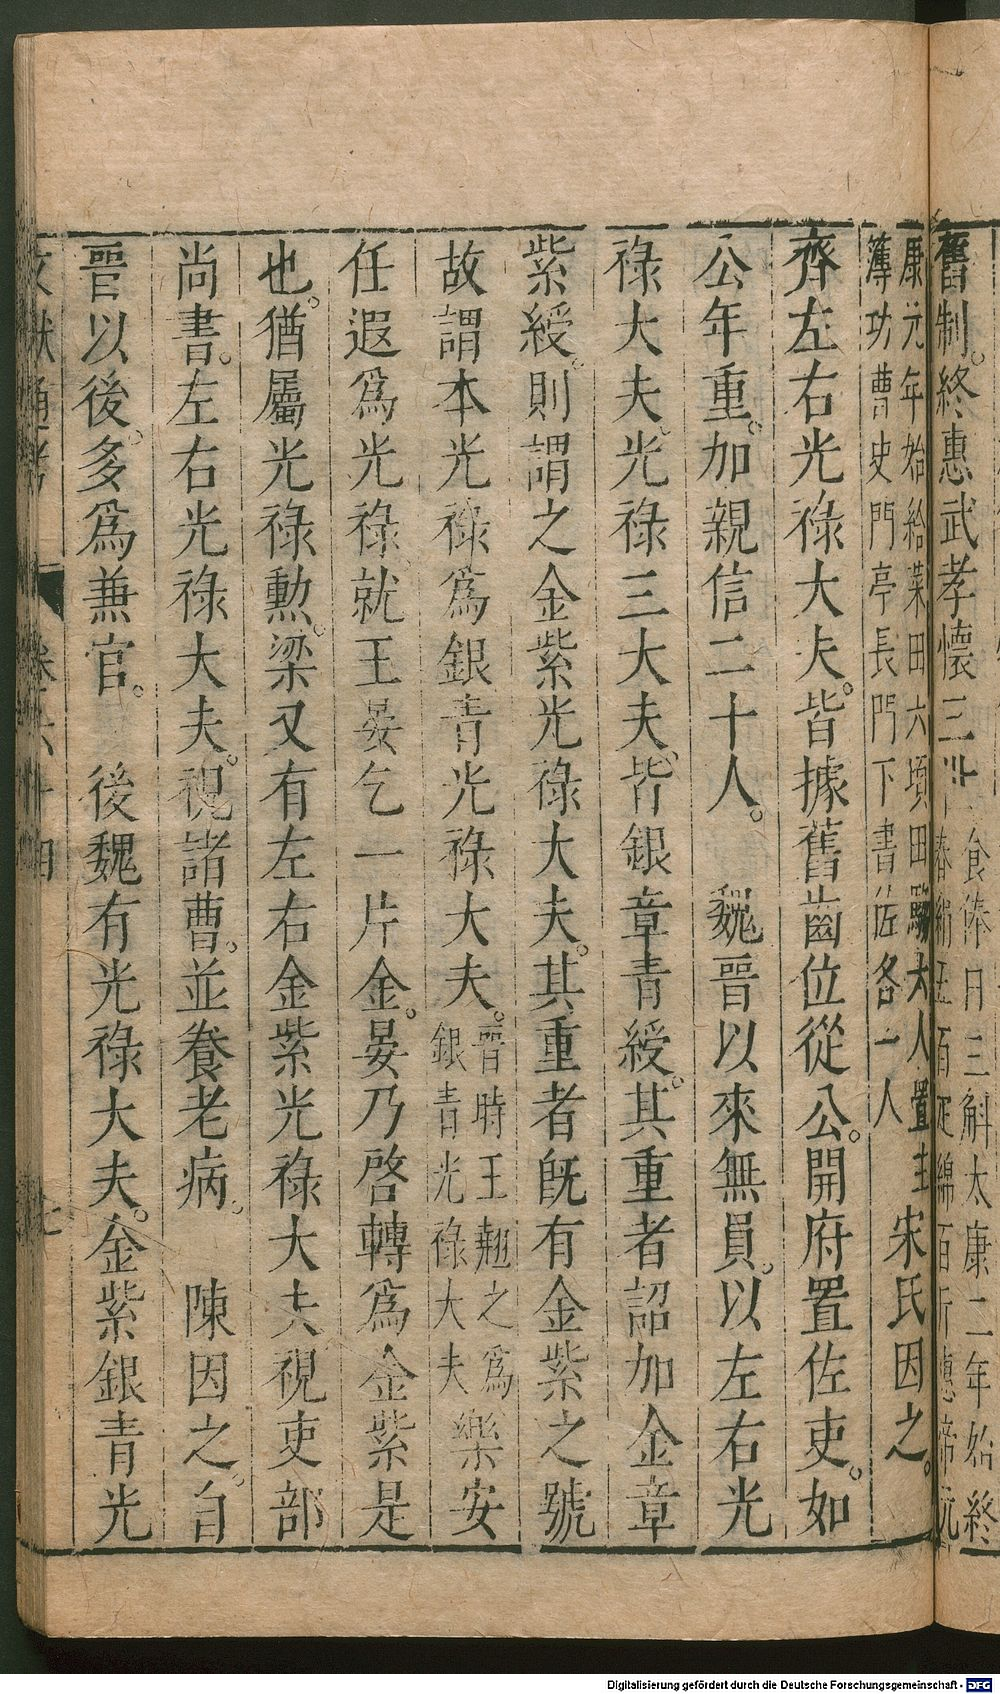 舊制。終惠武孝懷三世
食俸日三斛太康二年始
春絹五百疋綿百斤惠帝元
康元年始給菜田六頃田騶六人置主
簿功曹史門亭長門下書佐各一人
宋氏因之。
齊左右光祿大夫。皆據舊齒位從公。開府置佐吏。如
公年重。加親信二十人。 魏晉以來無員。以左右光
祿大夫。光祿三大夫。皆銀章青綬。其重者詔加金章
紫綬。則謂之金紫光祿大夫。其重者旣有金紫之號
故謂本光祿爲銀青光祿大夫。
晉時王翹之爲
銀青光祿大夫
樂安
任遐爲光祿。就王晏乞一片金。晏乃啓轉爲金紫是
也。猶屬光祿勲。梁又有左右金紫光祿大夫視吏部
尚書。左右光祿大夫。視諸曹。並養老病。 陳因之。自
晉以後。多爲兼官。 後魏有光祿大夫。金紫銀青光
文獻通考 卷六十四 七
Digitalisierung gefördert durch die Deutsche Forschungsgemeinschaft - DFG